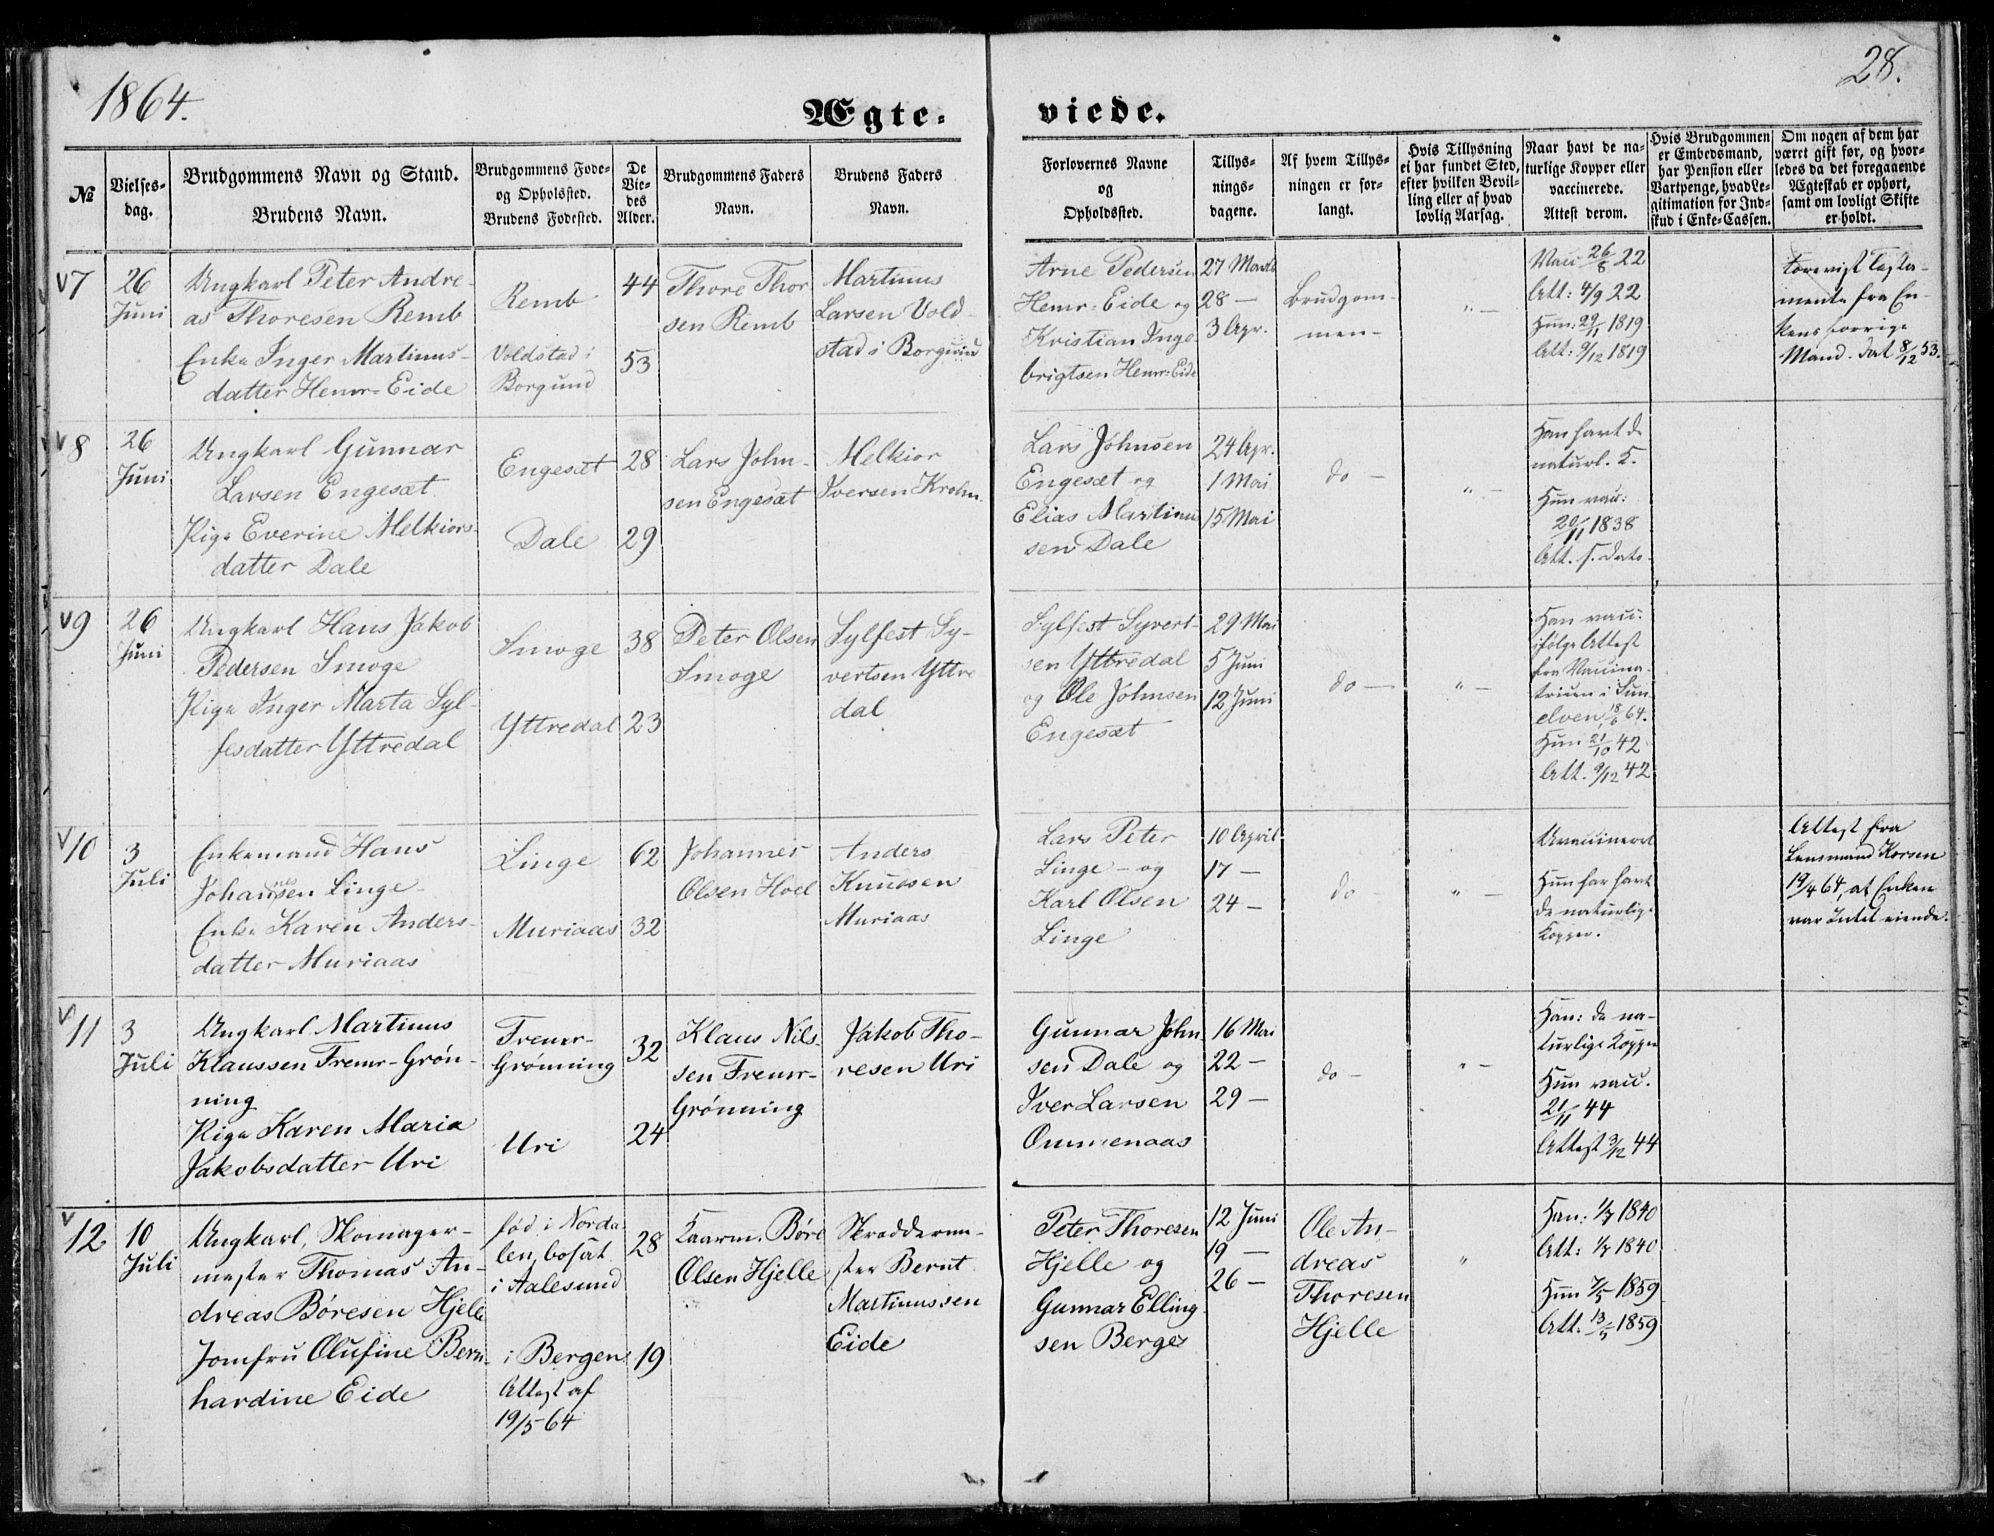 1864.
28.
Ægte-
viede.
№
Vielses-
dag.
Brudgommens Navn og Stand.
Brudens Navn.
Brudgommens Føde-
og Opholdssted.
Brudens Fødested.
De
Vie-
des
Alder.
Brudgommens Faders
Navn.
Brudens Faders
Navn.
Forlovernes Navne
og
Opholdssted.
Tillys-
nings-
dagene.
Af hvem Tillys-
ningen er for-
langt.
Hvis Tillysning
ei har fundet Sted,
efter hvilken Bevil-
ling eller af hvad
lovlig Aarsag.
Naar havt de na-
turlige Kopper eller
vaccinerede.
Attest derom.
Hvis Brudgommen
er Embedsmand,
har Pension eller
Vartpenge, hvad Le-
gitimation for Ind-
skud i Enke-Cassen.
Om nogen af dem har
været gift før, og hvor-
ledes da det foregaaende
Ægteskab er ophørt,
samt om lovligt Skifte
er holdt.
V7
26
Juni
Ungkarl Peter Andre-
as Thoresen Remb
Enke Inger Martinus-
datter Hemr-Eide
Remb
Voldstad i
Borgund
44
53
Thore Thor
sen Remb
Martinus
Larsen Vold-
stad i Borgund
Arne Pedersen
Hemr-Eide og
Kristian Inge-
brigtsen Hemr-Eide
27 Marts
28 —
3 Apr.
Brudgom-
men -
" —
Vacc 26/8 22
Att: 4/9 22
Hun: 29/11 1819
Att: 9/12 1819
Forevist Testa-
mente fra En-
kens forrige
Mand. dat 8/12 53.
V8
26
Juni
Ungkarl Gunnar
Larsen Engesæt
Pige Everine Melkiors-
datter Dale
Engesæt
Dale
28
29
Lars John-
sen Engesæt
Melkior
Iversen Krohn
Lars Johnsen
Engesæt og
Elias Martinu
sen Dale
24 Apr.
1 Mai
15 Mai
do —
" —
Han havt de
naturl. K.
Hun vacc:
20/11 1838
Att. s. Dato.
V9
26
Juni
Ungkarl Hans Jakob
Pedersen Smoge
Pige Inger Marta Syl-
fesdatter Yttredal
Smoge
Yttredal
38
23
Peter Olsen
Smoge
Sylfest Sy-
vertsen Yttre
dal
Sylfest Syvert-
sen Yttredal
og Ole Johnsen
Engesæt
29 Mai
5 Juni
12 Juni
do —
" —
Han vacc.
ifølge Attest
fra Vaccina-
teuren i Sun-
elven 18/6 64.
Hun 21/10 42
Att. 9/12 42
V10
3
Juli
Enkemand Hans
Johannessen Linge
Enke Karen Anders-
datter Muriaas
Linge
Muriaas
62
32
Johannes
Olsen Hoel
Anders
Knudsen
Muriaas
Lars Peter
Linge — og
Karl Olsen
Linge
10 April
17 —
24 —
do —
" —
Uvaccineret
Hun har havt
de naturlige
Kopper.
Attest fra
Lensmand Korsen
19/4 64, at Enken
var Intet eiende.
V11
3
Juli
Ungkarl Martinus
Klaussen Fremr-Grøn-
ning
Pige Karen Maria
Jakobsdatter Uri
Fremr-
Grønning
Uri
32
24
Klaus Nils-
sen Fremr-
Grønning
Jakob Tho-
resen Uri
Gunnar John
sen Dale og
Iver Larsen
Ommenaas
16 Mai
22 —
29 —
do —
" —
Han: de na-
turlige Kopper
Hun vacc.
21/11 44
Attest 3/12 44
V
12
10
Juli
Ungkarl, Skomager-
mester Thomas An-
dreas Børesen Hjelle
Jomfru Olufine Bern-
hardine Eide
fød i Norda-
len, bosat
i Aalesund
i Bergen
Attest af
19/5 64
28
19
Kaarm. Børe
Olsen Hjelle
Skrædderme-
ster Bernt
Martinussen
Eide
Peter Thoresen
Hjelle og
Gunnar Elling
sen Berge
12 Juni
19 —
26 —
Ole An-
dreas
Thoresen
Hjelle
"
Han: 1/7 1840
Att: 1/7 1840
Hun 7/5 1859
Att: 13/5 1859